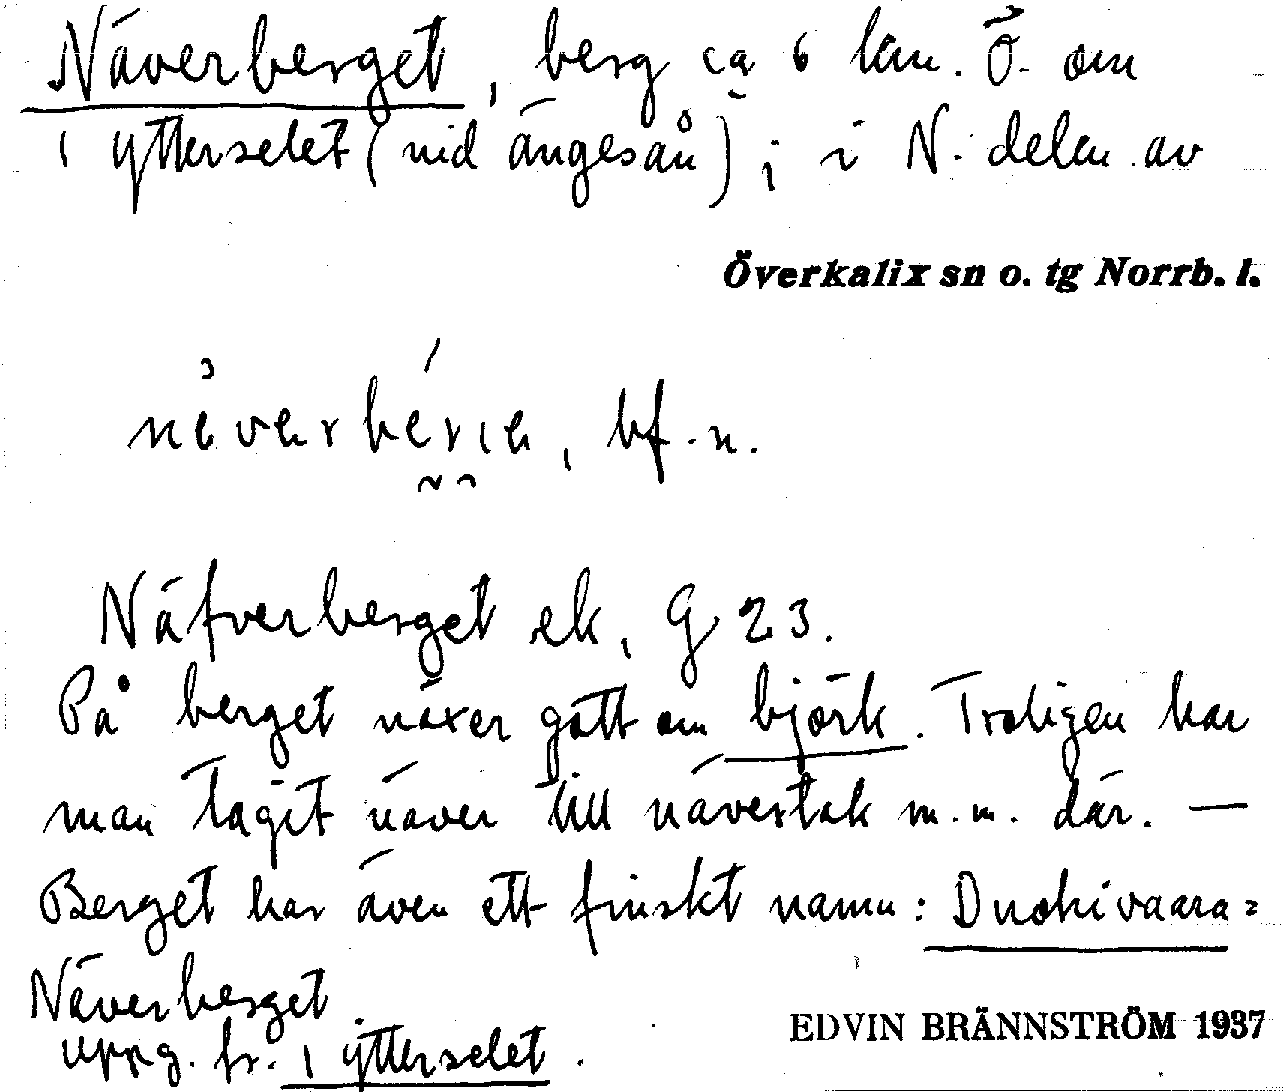 Näverberget, berg ca 6 km. Ö. om
1 ytterselet (vid ängesån) ; i N. delen av
Överkalix sn o. tg Norrb. l.
bf. n.
Näfverberget ek. G 23.
På berget växer gott om björk. Troligen har
man tagit näver till nävertak m.m. där. —
Berget har även ett finskt namn: Duohivaara =
Näverberget.
uppg. fr. 1 ytterselet.
EDVIN BRÄNNSTRÖM 1937